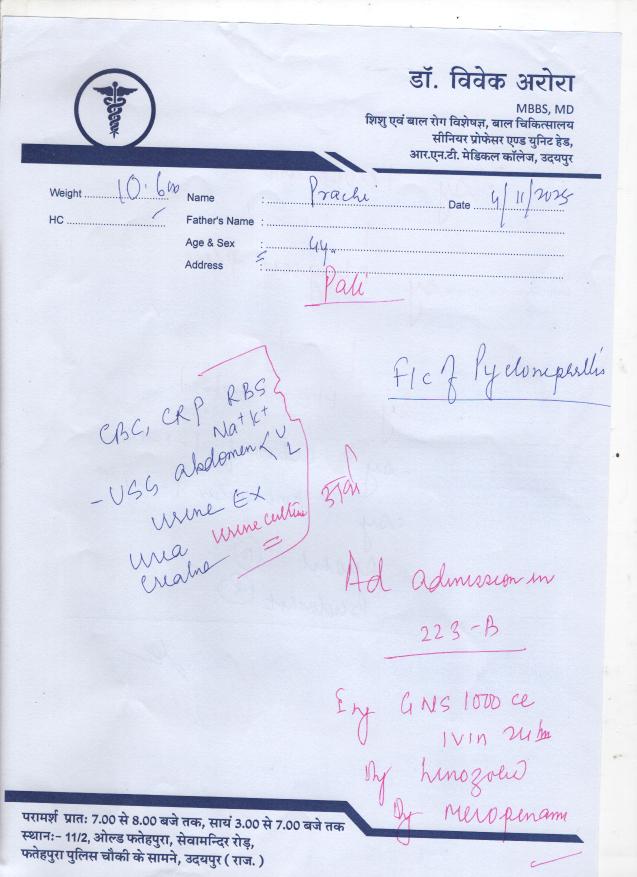 डॉ. विवेक अरोरा
MBBS, MD
शिशु एवं बाल रोग विशेषज्ञ, बाल चिकित्सालय
सीनियर प्रोफेसर एण्ड युनिट हेड,
आर.एन.टी. मेडिकल कॉलेज, उदयपुर
Weight 10.600 Name : Prachi Date 4/11/2025
HC Father's Name :
Age & Sex : 4y
Address : Pali
F/c of Pyelonephritis
CBC, CRP RBS
Na+ K+
- USG abdomen < U
L
Urine Ex
Urea Urine culture
Creatine
Ad admission in
223-B
Inj GNS 1000 cc
IV in 24 hr
Inj Linozolid
Inj Meropenam
परामर्श प्रातः 7.00 से 8.00 बजे तक, सायं 3.00 से 7.00 बजे तक
स्थानः- 11/2, ओल्ड फतेहपुरा, सेवामन्दिर रोड़,
फतेहपुरा पुलिस चौकी के सामने, उदयपुर ( राज. )